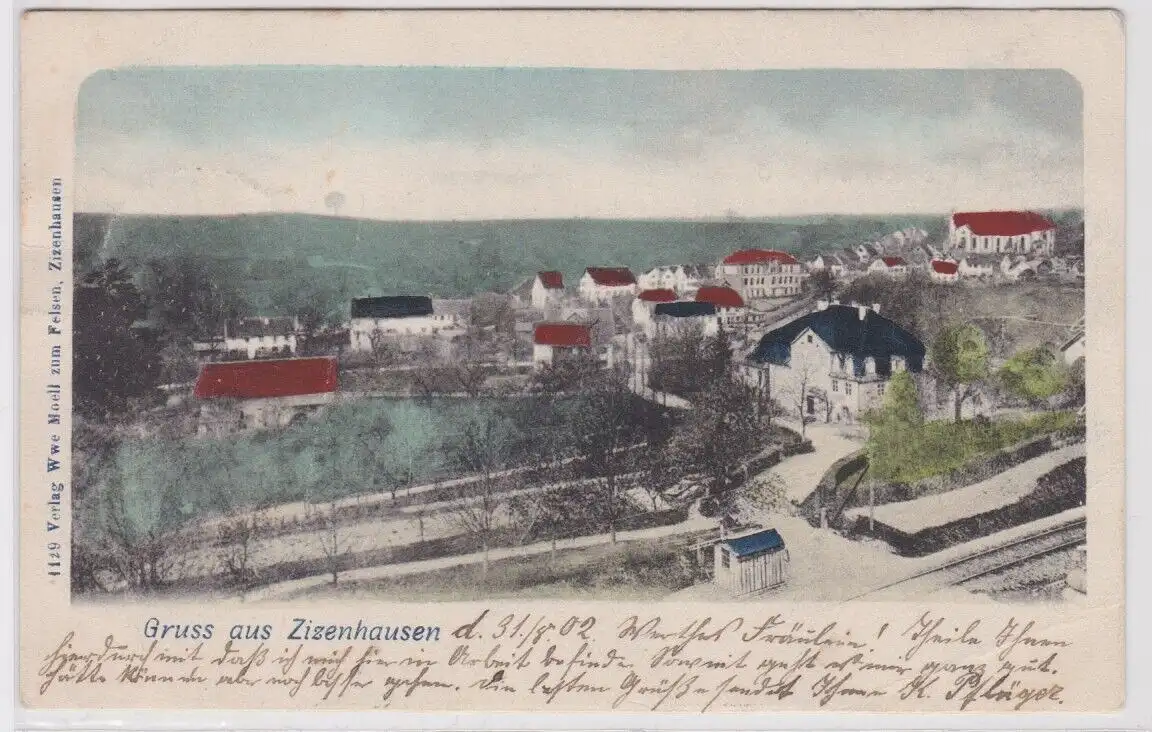 1129 Verlag Wwe Moell zum Felsen, Zizenhausen
Gruss aus Zizenhausen d. 31./8. 02. Werthes Fräulein! Theile Ihnen
hierdurch mit daß ich mich hier in Arbeit befinde. Soweit geht es mir ganz gut.
hätte können aber noch besser gehen. Die besten Grüße sendet Ihnen K. Pflüger.